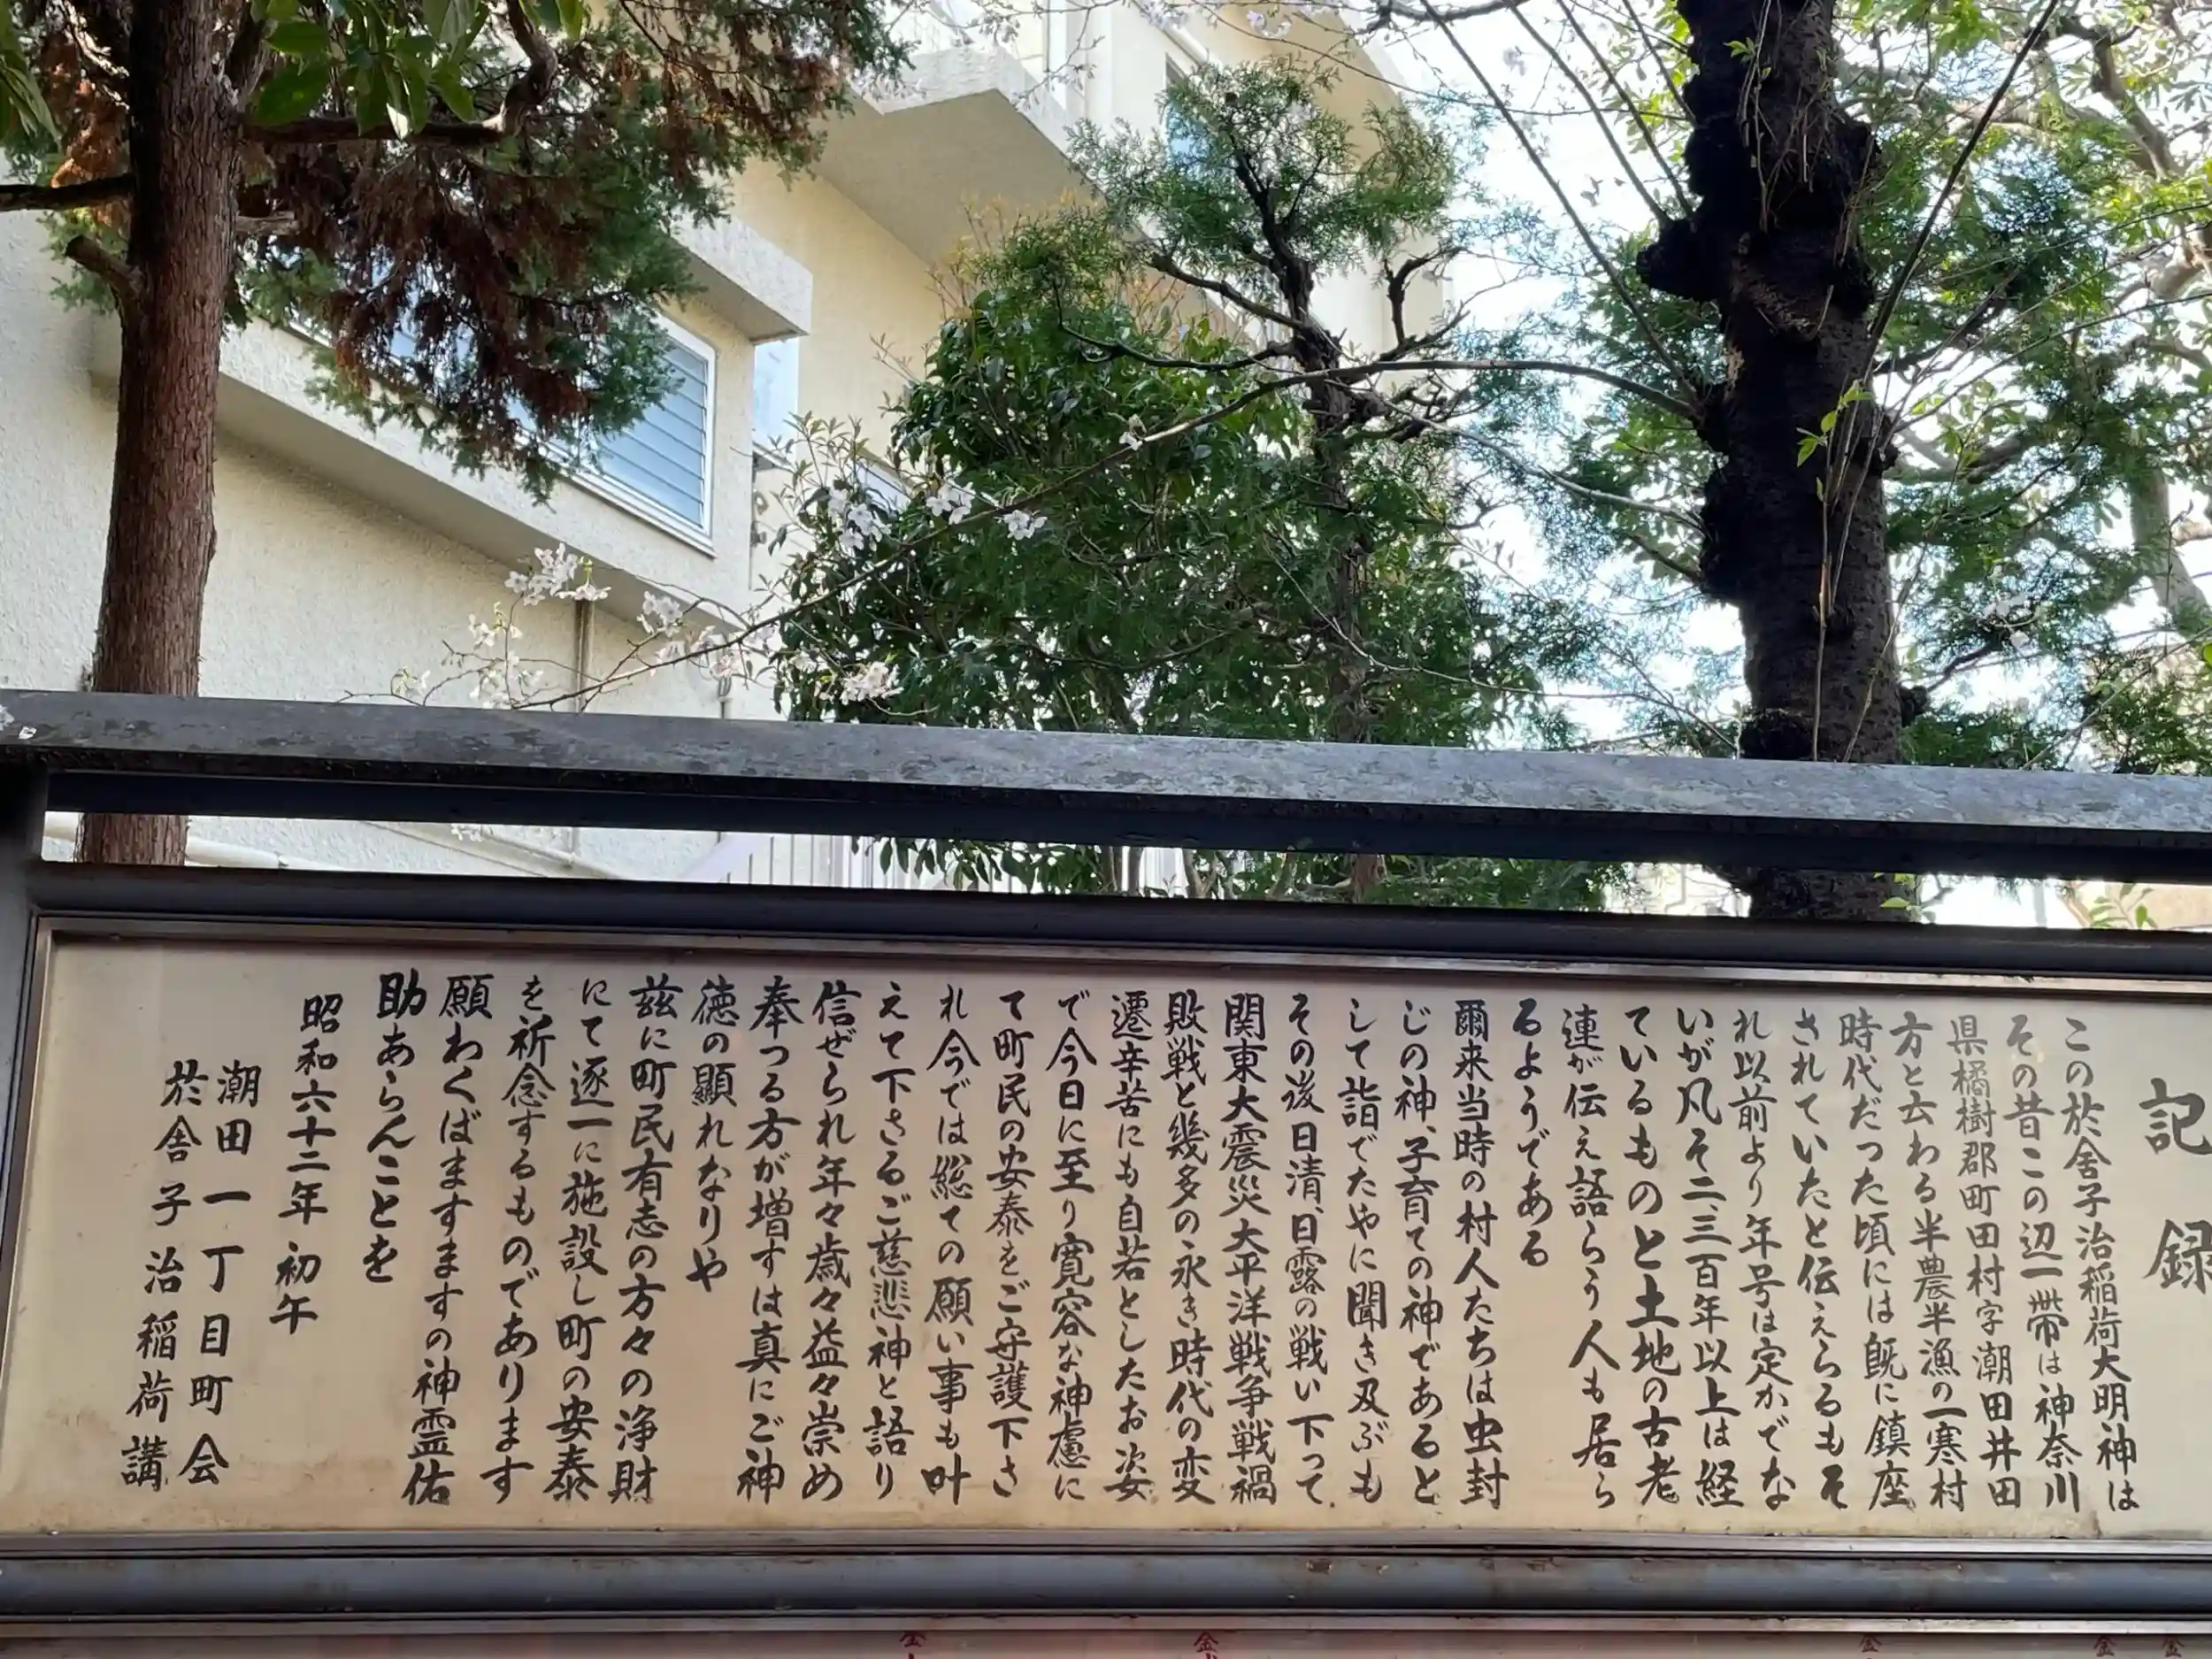 記録
この於舎子治稲荷大明神は
その昔この辺一帯は神奈川
県橘樹郡町田村字潮田井田
方と云わる半農半漁の一寒村
時代だった頃には既に鎮座
されていたと伝えらるもそ
れ以前より年号は定かでな
いが凡そ二、三百年以上は経
ているものと土地の古老
連が伝え語らう人も居ら
るようである
爾来当時の村人たちは虫封
じの神、子育ての神であると
して詣でたやに聞き及ぶも
その後日清、日露の戦い下って
関東大震災大平洋戦争戦禍
敗戦と幾多の永き時代の変
遷辛苦にも自若としたお姿
で今日に至り寛容な神慮に
て町民の安泰をご守護下さ
れ今では総ての願い事も叶
えて下さるご慈悲神と語り
信ぜられ年々歳々益々崇め
奉つる方が増すは真にご神
徳の顕れなりや
茲に町民有志の方々の浄財
にて逐一に施設し町の安泰
を祈念するものであります
願わくばますますの神霊佑
助あらんことを
昭和六十二年 初午
潮田一丁目町会
於舎子治稲荷講
金
金
金
金
金